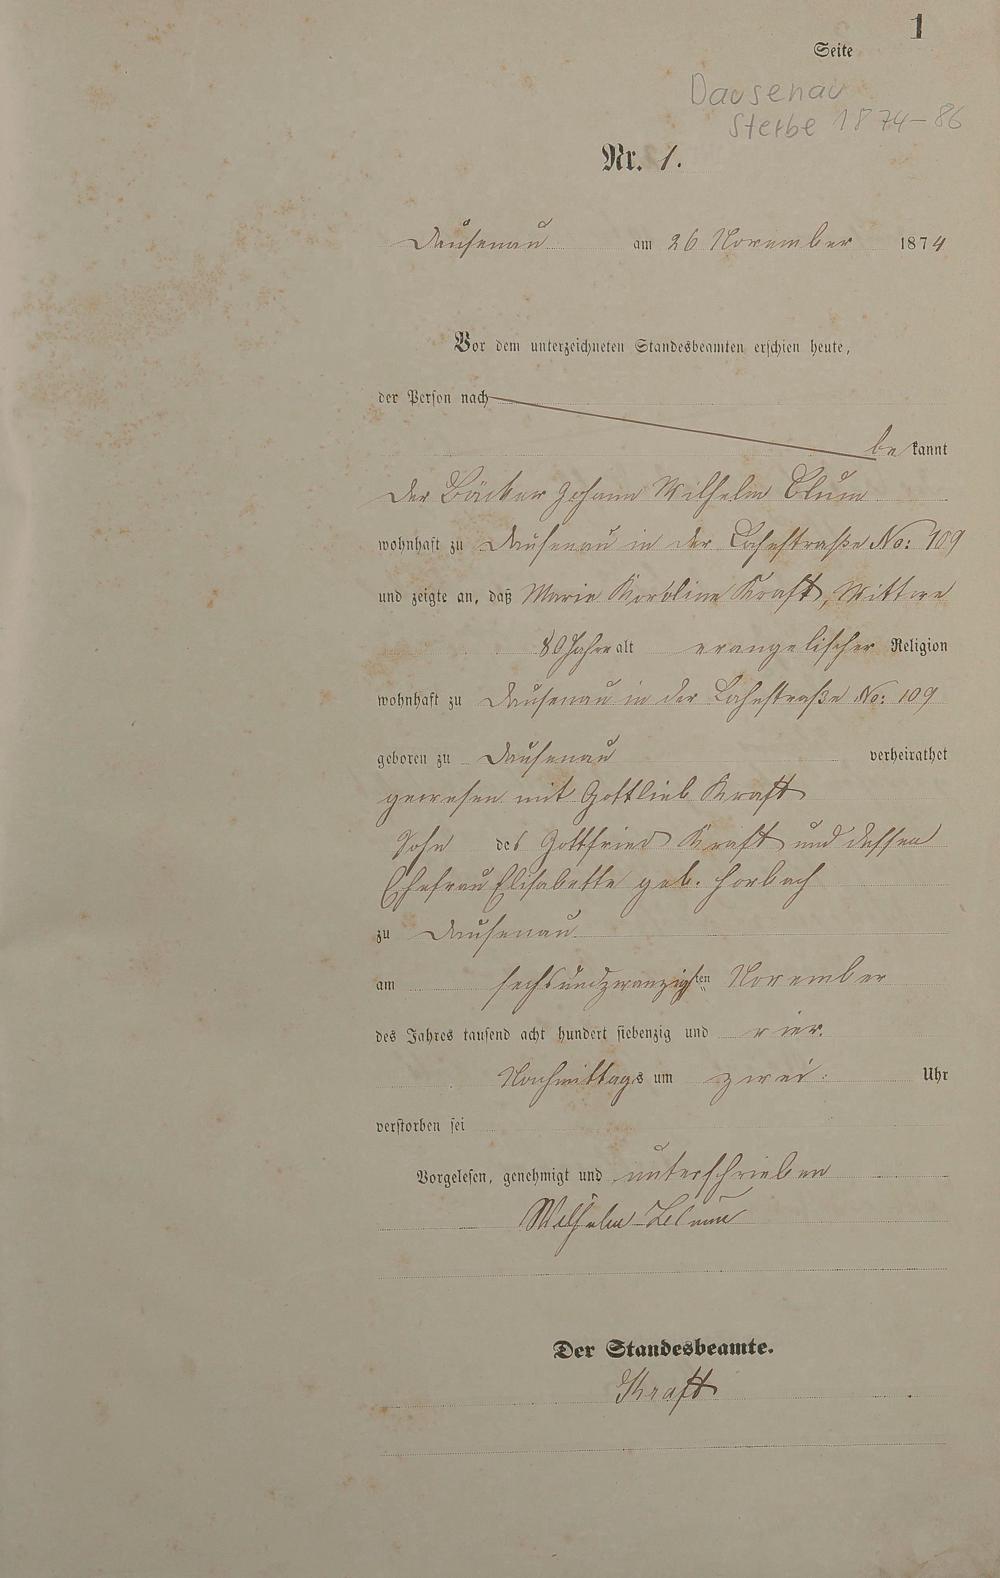 1
Seite
Dausenau
Sterbe 1874-86
Nr. 1.
Dausenau am 26 November 1874
Vor dem unterzeichneten Standesbeamten erschien heute,
der Person nach
be kannt
der Bäcker Johann Wilhelm Blum
wohnhaft zu Dausenau in der Lahnstraße No: 109
und zeigte an, daß Marie Karoline Kraft, Wittwe
80 Jahre alt evangelischer Religion
wohnhaft zu Dausenau in der Lahnstraße No: 109
geboren zu Dausenau verheirathet
gewesen mit Gottlieb Kraft
Sohn des Gottfried Kraft und dessen
Ehefrau Elisabetha geb. Horbach
zu Dausenau
am sechsundzwanzigsten November
des Jahres tausend acht hundert siebenzig und vier.
Nachmittags um zwei Uhr
verstorben sei
Vorgelesen, genehmigt und unterschrieben
Wilhelm
Der Standesbeamte.
Kraft